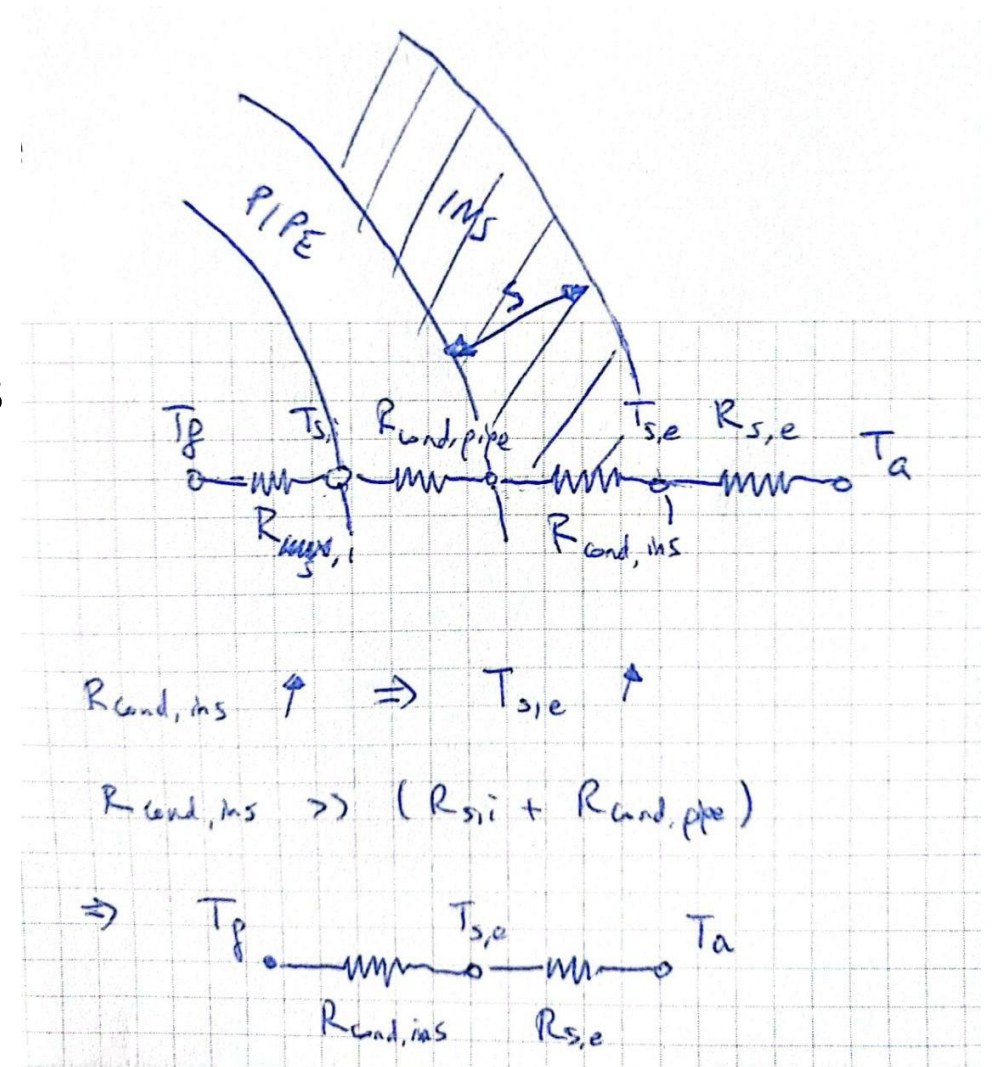 PIPE
INS
S
T_f T_s,i R_cond,pipe T_s,e R_s,e T_a
R_s,i R_cond,ins
R_cond,ins ↑ ⇒ T_s,e ↑
R_cond,ins >> (R_s,i + R_cond,pipe)
⇒ T_f T_s,e T_a
R_cond,ins R_s,e